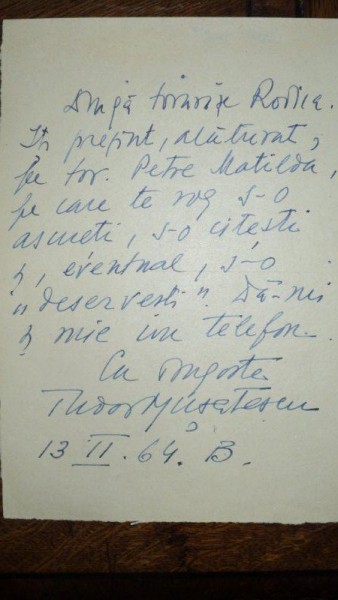 Dragă tovarășe Rodica.
Îți prezint, alăturat,
pe tov. Petre Matilda,
pe care te rog s-o
asculți, s-o citești
ș, eventual, s-o
"deservești". Dă-mi
ș mie un telefon.
Cu dragoste
Tudor Mușatescu
13 II. 64. B.